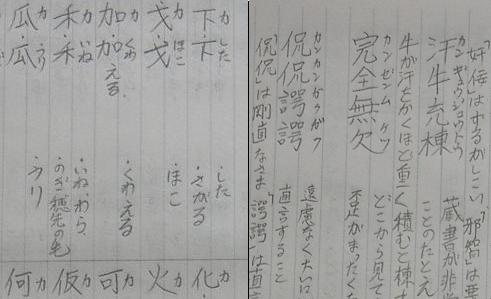 「奸佞」はずるがしこい、「邪智」は悪
汗牛充棟 カンギュウジュウトウ
蔵書が非
ことのたとえ
牛が汗をかくほど重く、積むと棟
完全無欠 カンゼンムケツ
どこから見て
不足がまったくな
侃侃諤諤 カンカンガクガク
遠慮なく大いに
直言すること
「侃侃」は剛直なさま「諤諤」は直言
下 カ 下 した
・した
・さがる
戈 カ 戈 ほこ
・ほこ
加 カ 加える くわ
・くわえる
禾 カ 禾 いね
・いねわら、
・のぎ 穂先の毛
瓜 カ 瓜 うり
・うり
化 カ
火 カ
可 カ
仮 カ
何 カ